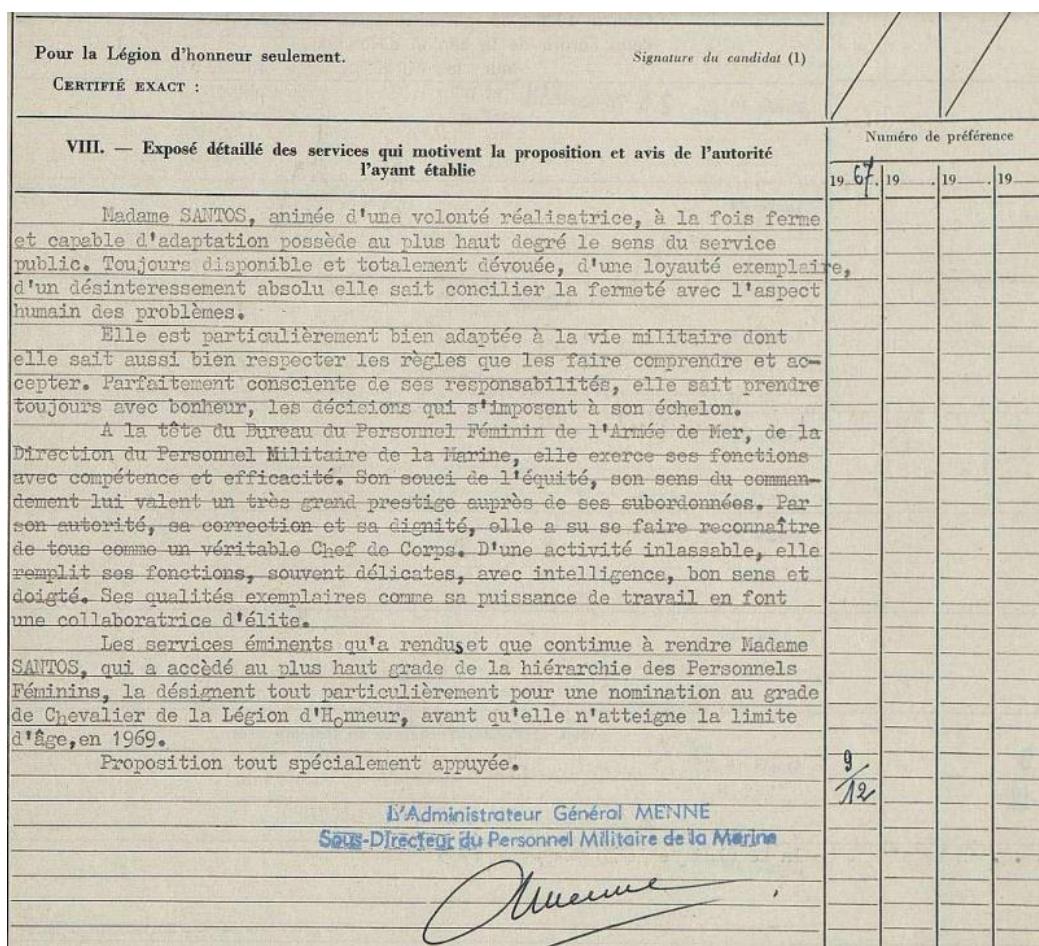 Pour la Légion d'honneur seulement.
Signature du candidat (1)
CERTIFIÉ EXACT :
VIII. — Exposé détaillé des services qui motivent la proposition et avis de l'autorité
l'ayant établie
Numéro de préférence
19 67. 19 . 19 . 19
Madame SANTOS, animée d'une volonté réalisatrice, à la fois ferme
et capable d'adaptation possède au plus haut degré le sens du service
public. Toujours disponible et totalement dévouée, d'une loyauté exemplaire,
d'un désinteressement absolu elle sait concilier la fermeté avec l'aspect
humain des problèmes.
Elle est particulièrement bien adaptée à la vie militaire dont
elle sait aussi bien respecter les règles que les faire comprendre et ac-
cepter. Parfaitement consciente de ses responsabilités, elle sait prendre
toujours avec bonheur, les décisions qui s'imposent à son échelon.
A la tête du Bureau du Personnel Féminin de l'Armée de Mer, de la
Direction du Personnel Militaire de la Marine, elle exerce ses fonctions
avec compétence et efficacité. Son souci de l'équité, son sens du comman-
dement lui valent un très grand prestige auprès de ses subordonnées. Par
son autorité, sa correction et sa dignité, elle a su se faire reconnaître
de tous comme un véritable Chef de Corps. D'une activité inlassable, elle
remplit ses fonctions, souvent délicates, avec intelligence, bon sens et
doigté. Ses qualités exemplaires comme sa puissance de travail en font
une collaboratrice d'élite.
Les services éminents qu'a renduset que continue à rendre Madame
SANTOS, qui a accèdé au plus haut grade de la hiérarchie des Personnels
Féminins, la désignent tout particulièrement pour une nomination au grade
de Chevalier de la Légion d'Honneur, avant qu'elle n'atteigne la limite
d'âge,en 1969.
Proposition tout spécialement appuyée.
9/12
L'Administrateur Général MENNE
Sous-Directeur du Personnel Militaire de la Marine
Menne